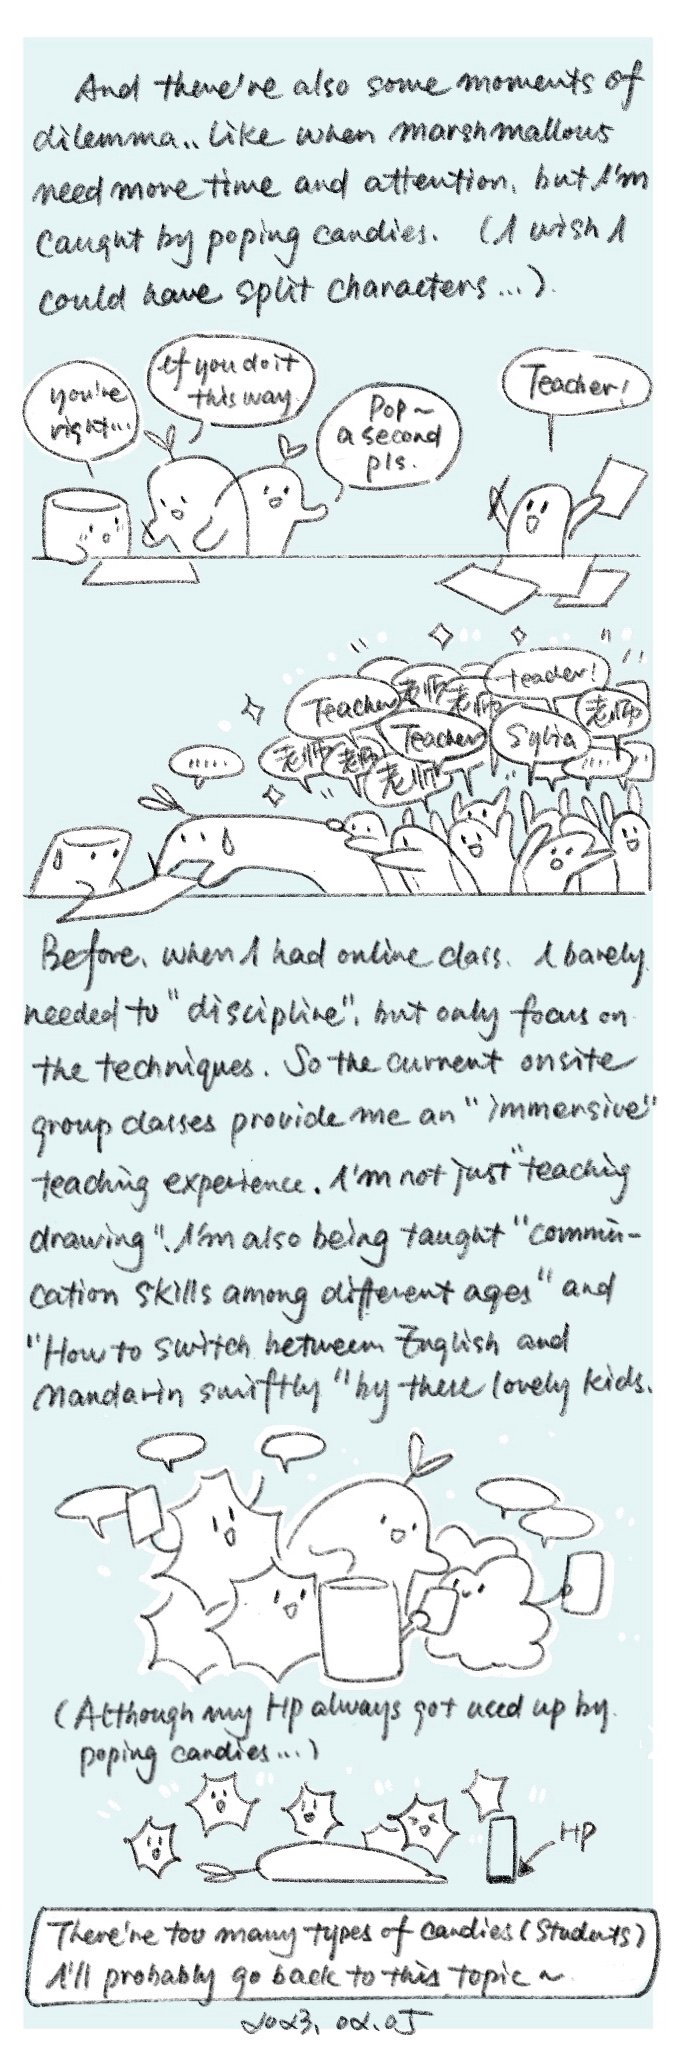 And there're also some moments of
dilemma.. Like when marshmallows
need more time and attention, but I'm
caught by poping candies. (I wish I
could have split characters...).
you're
right...
If you do it
this way.
Pop~
a second
pls.
Teacher!
.....
Teacher
老师
老师
teacher!
老师
老师
老师
老师
Teacher
Sylvia
.....
Before, when I had online class. I barely
needed to "discipline", but only focus on
the techniques. So the current onsite
group classes provide me an "immensive"
teaching experience. I'm not just "teaching
drawing". I'm also being taught "commun-
cation skills among different ages" and
"How to switch between English and
Mandarin swiftly" by these lovely kids.
(Although my Hp always got used up by
poping candies...)
HP
There're too many types of candies (Students)
I'll probably go back to this topic~
2023. 02. 05